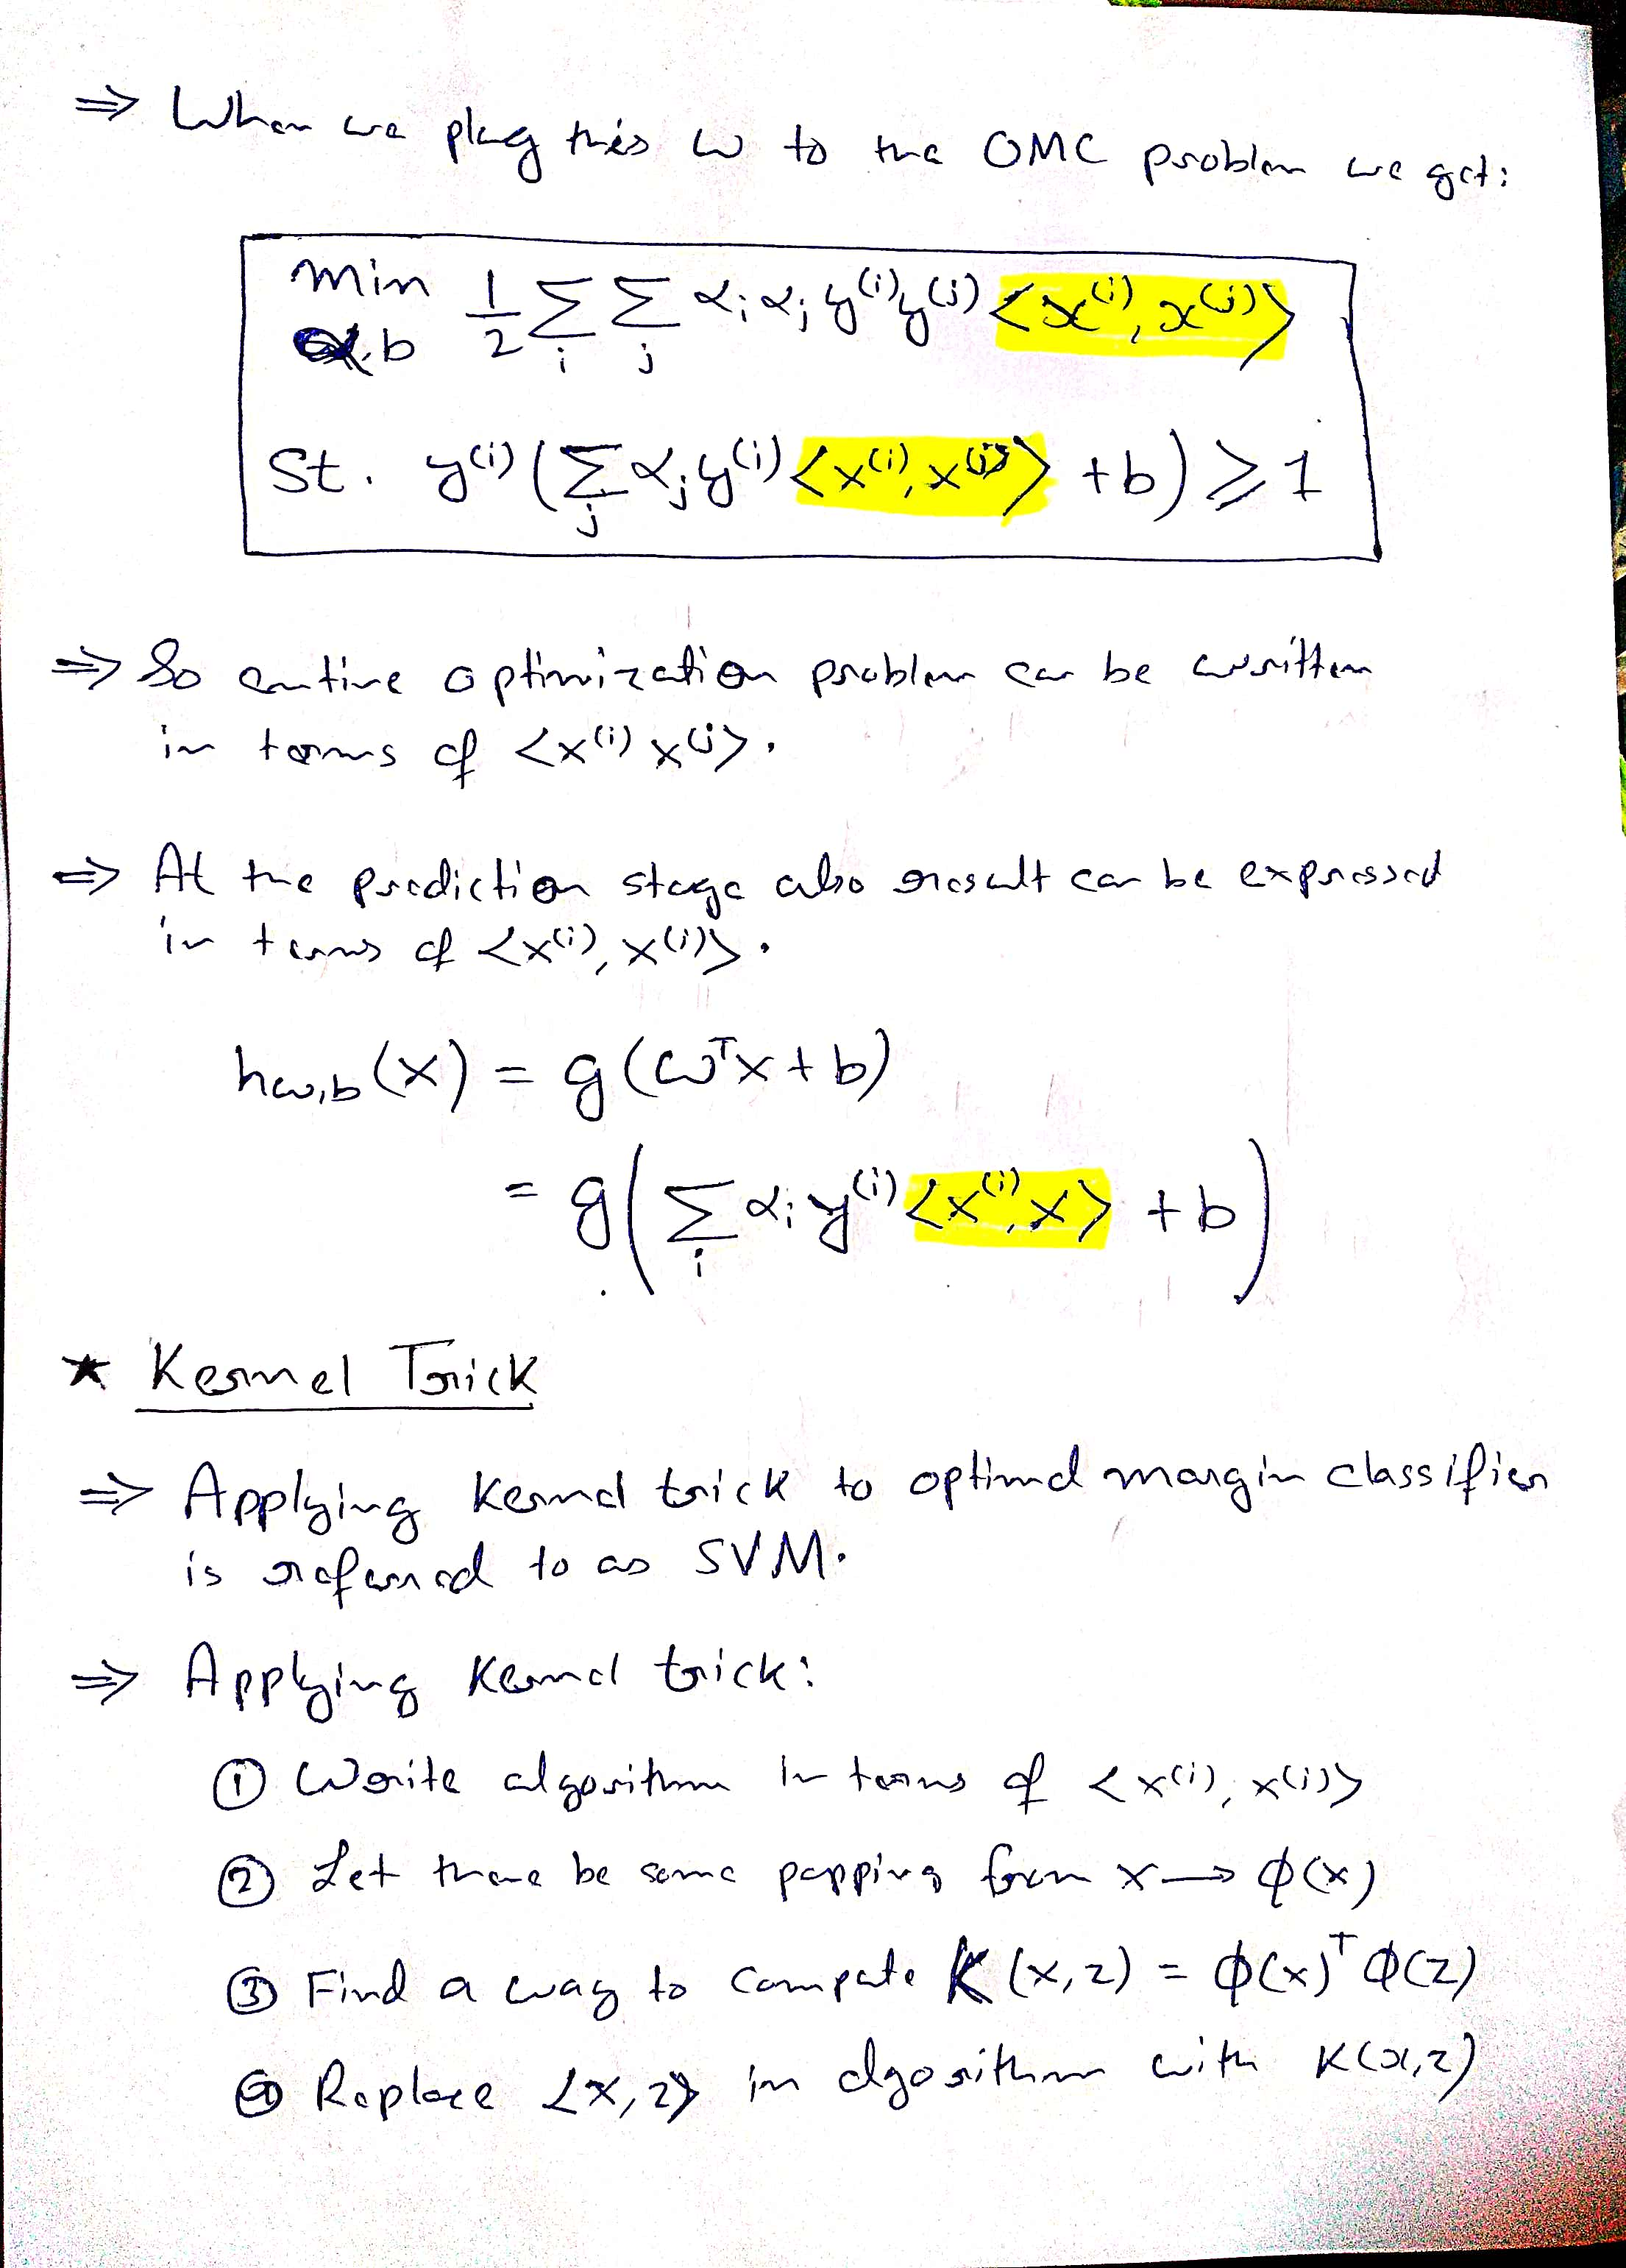 ⇒ When we plug this w to the OMC problem we get:
min 1/2 Σ Σ αᵢ αⱼ y⁽ⁱ⁾y⁽ʲ⁾ <x⁽ⁱ⁾, x⁽ʲ⁾>
α,b i j
St. y⁽ⁱ⁾ (Σ αⱼ y⁽ⁱ⁾ <x⁽ⁱ⁾, x⁽ʲ⁾> + b) ⩾ 1
j
⇒ So entire optimization problem can be written
in terms of <x⁽ⁱ⁾ x⁽ʲ⁾>.
⇒ At the prediction stage also result can be expressed
in terms of <x⁽ⁱ⁾, x⁽ʲ⁾>.
h w,b (x) = g(wᵀx + b)
= g( Σ αᵢ y⁽ⁱ⁾ <x⁽ⁱ⁾, x> + b )
i
★ Kernel Trick
⇒ Applying Kernel trick to optimal margin classifier
is referred to as SVM.
⇒ Applying Kernel trick:
① Write algorithm In terms of <x⁽ⁱ⁾, x⁽ʲ⁾>
② Let there be some papping from x → ϕ(x)
③ Find a way to compute K (x, z) = ϕ(x)ᵀ ϕ(z)
④ Replace <x, z> in algorithm with K(x, z)